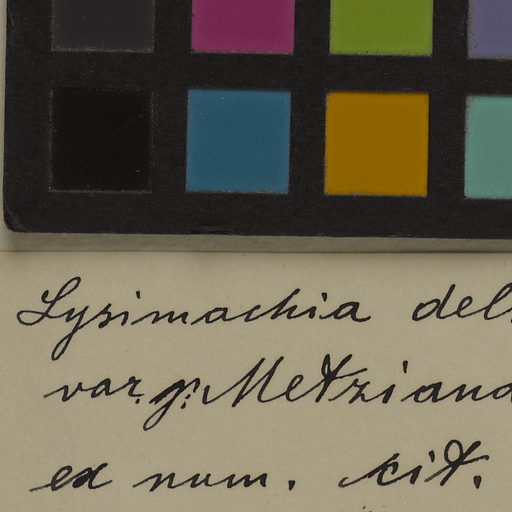 Lysimachia del
var. γ. Metziana
ex num. cit.